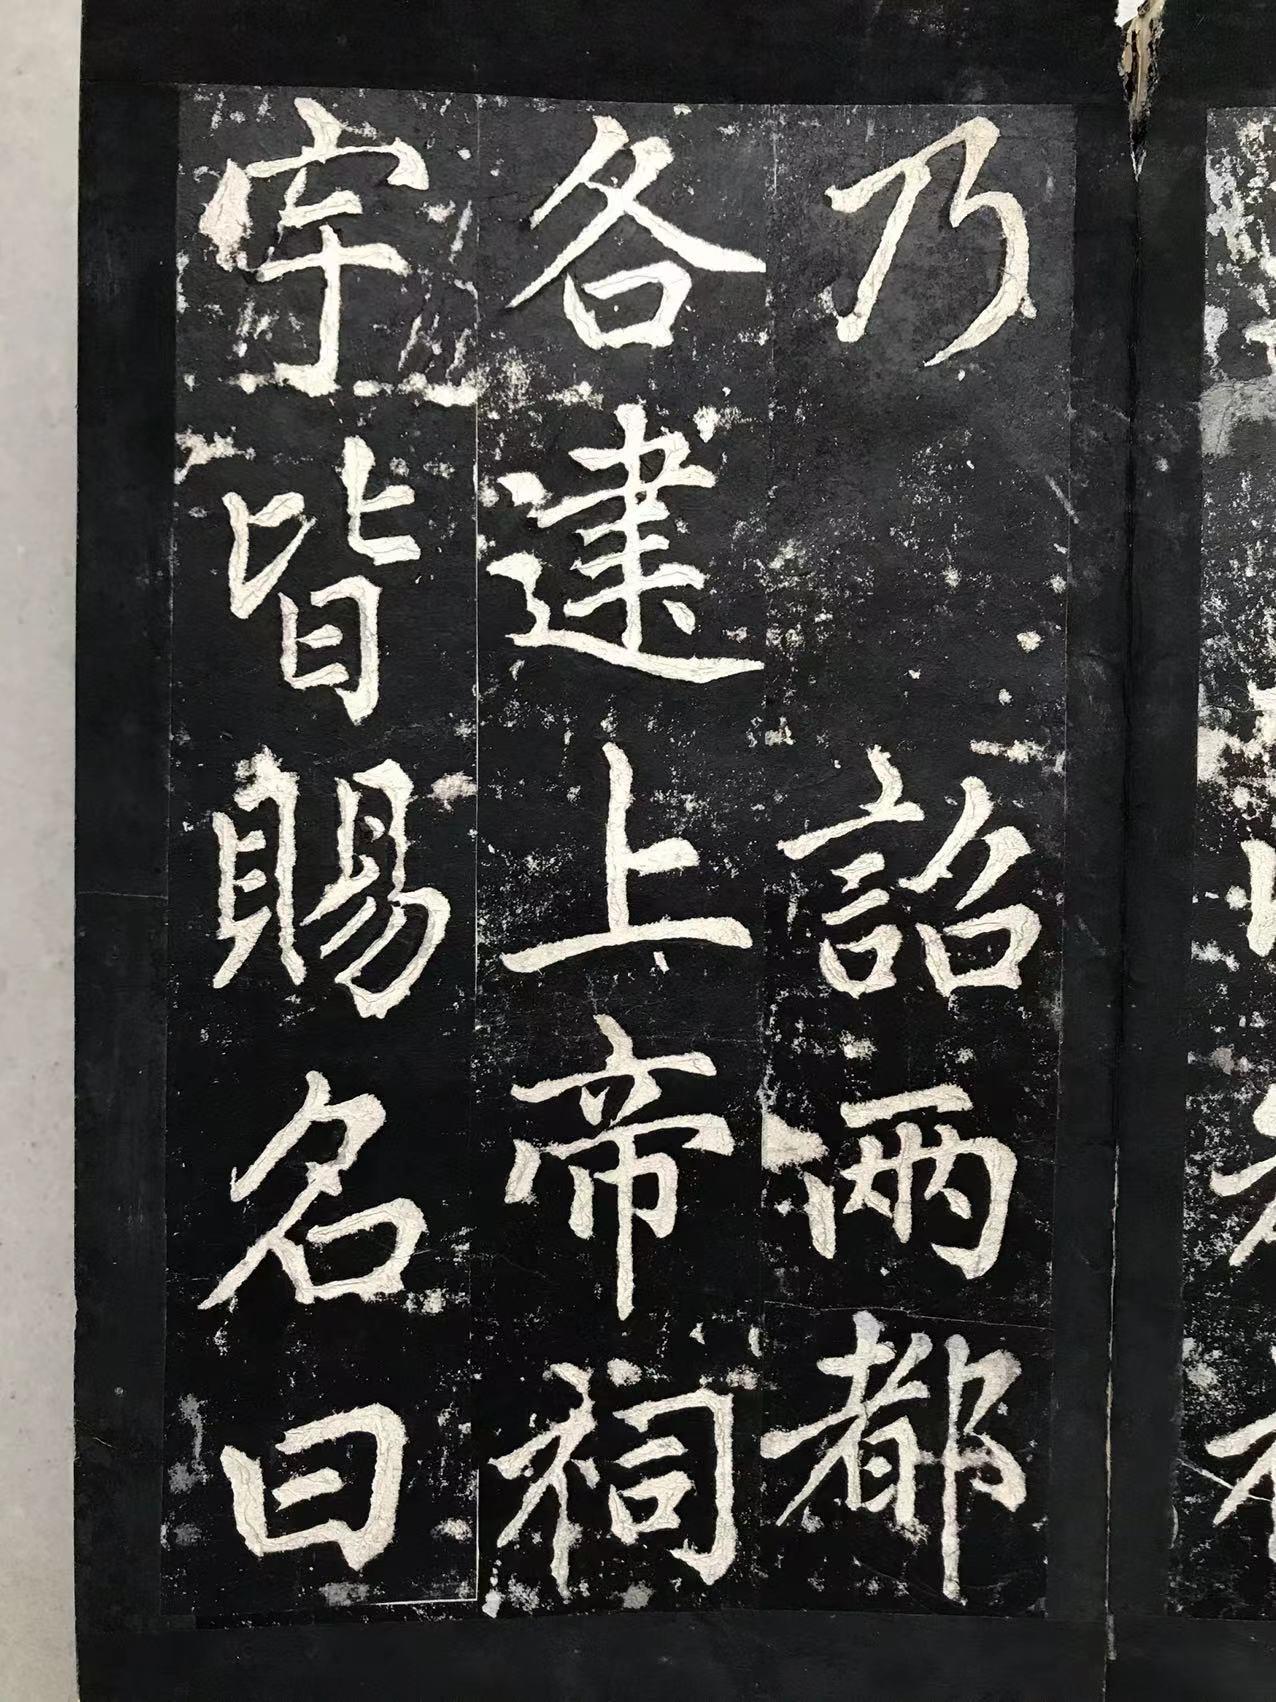 乃 詔兩都
各建上帝祠
宇皆賜名曰